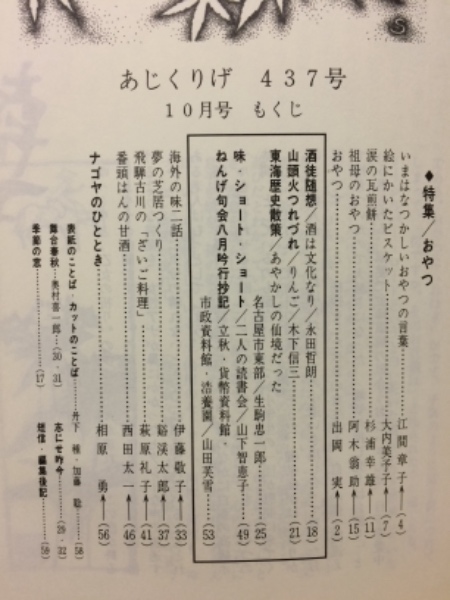 あじくりげ 437号
10月号 もくじ
◆特集／おやつ
いまはなつかしいおやつの言葉……江間章子…(4)
絵にかいたビスケット……大内美予子…(7)
涙の瓦煎餅……杉浦幸雄…(11)
祖母のおやつ……阿木翁助…(15)
おやつ……出岡実…(2)
酒徒随想／酒は文化なり／永田哲朗……(18)
山頭火つれづれ／りんご／木下信三……(21)
東海歴史散策／あやかしの仙境だった
名古屋市東部／生駒忠一郎……(25)
味・ショート・ショート／二人の読書会／山下智恵子……(49)
ねんげ句会八月吟行抄記／立秋・貨幣資料館・
市政資料館・浩養園／山田芙雪……(53)
海外の味二話……伊藤敬子…(33)
夢の芝居づくり……谿渓太郎…(37)
飛騨古川の「ざいご料理」……萩原礼子…(41)
番頭はんの甘酒……西田太一…(46)
ナゴヤのひととき……相原勇…(56)
表紙のことば・カットのことば……丹下 ・加藤 (58)
舞台春秋…奥村喜一郎…(30・31)
志にせ昨今……(29・32)
季節の窓……(17)
短信・編集後記……(59)
S